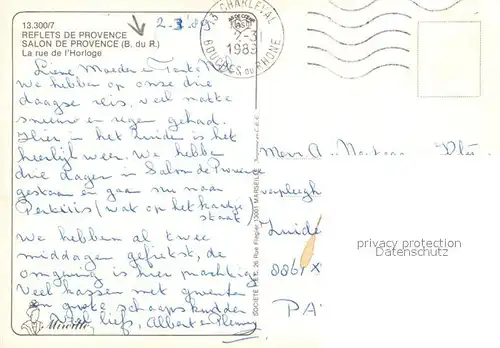 13.300/7
REFLETS DE PROVENCE
SALON DE PROVENCE (B. du R.)
La rue de l'Horloge
2-3 89
13 CHARLEVAL
2-3
1989
BOUCHES du RHONE
Lieve Moeder en Tante
We hebben op onze drie
daagse reis, veel natte
sneeuw en regen gehad.
Hier in het zuiden is het
heerlijk weer. We hebben
drie dagen in Salon de Provence
gestaan en gaan nu naar
Pertuis (wat op het kaartje
staat)
We hebben al twee
middagen gefietst, de
omgeving is hier prachtig
Veel kassen met groenten
en grote schaapskudden
Veel liefs, Albert en
Mireille
13001 MARSEILLE
Mevr. A.
verpleegh
Zuide
privacy protection
Datenschutz
8861 X